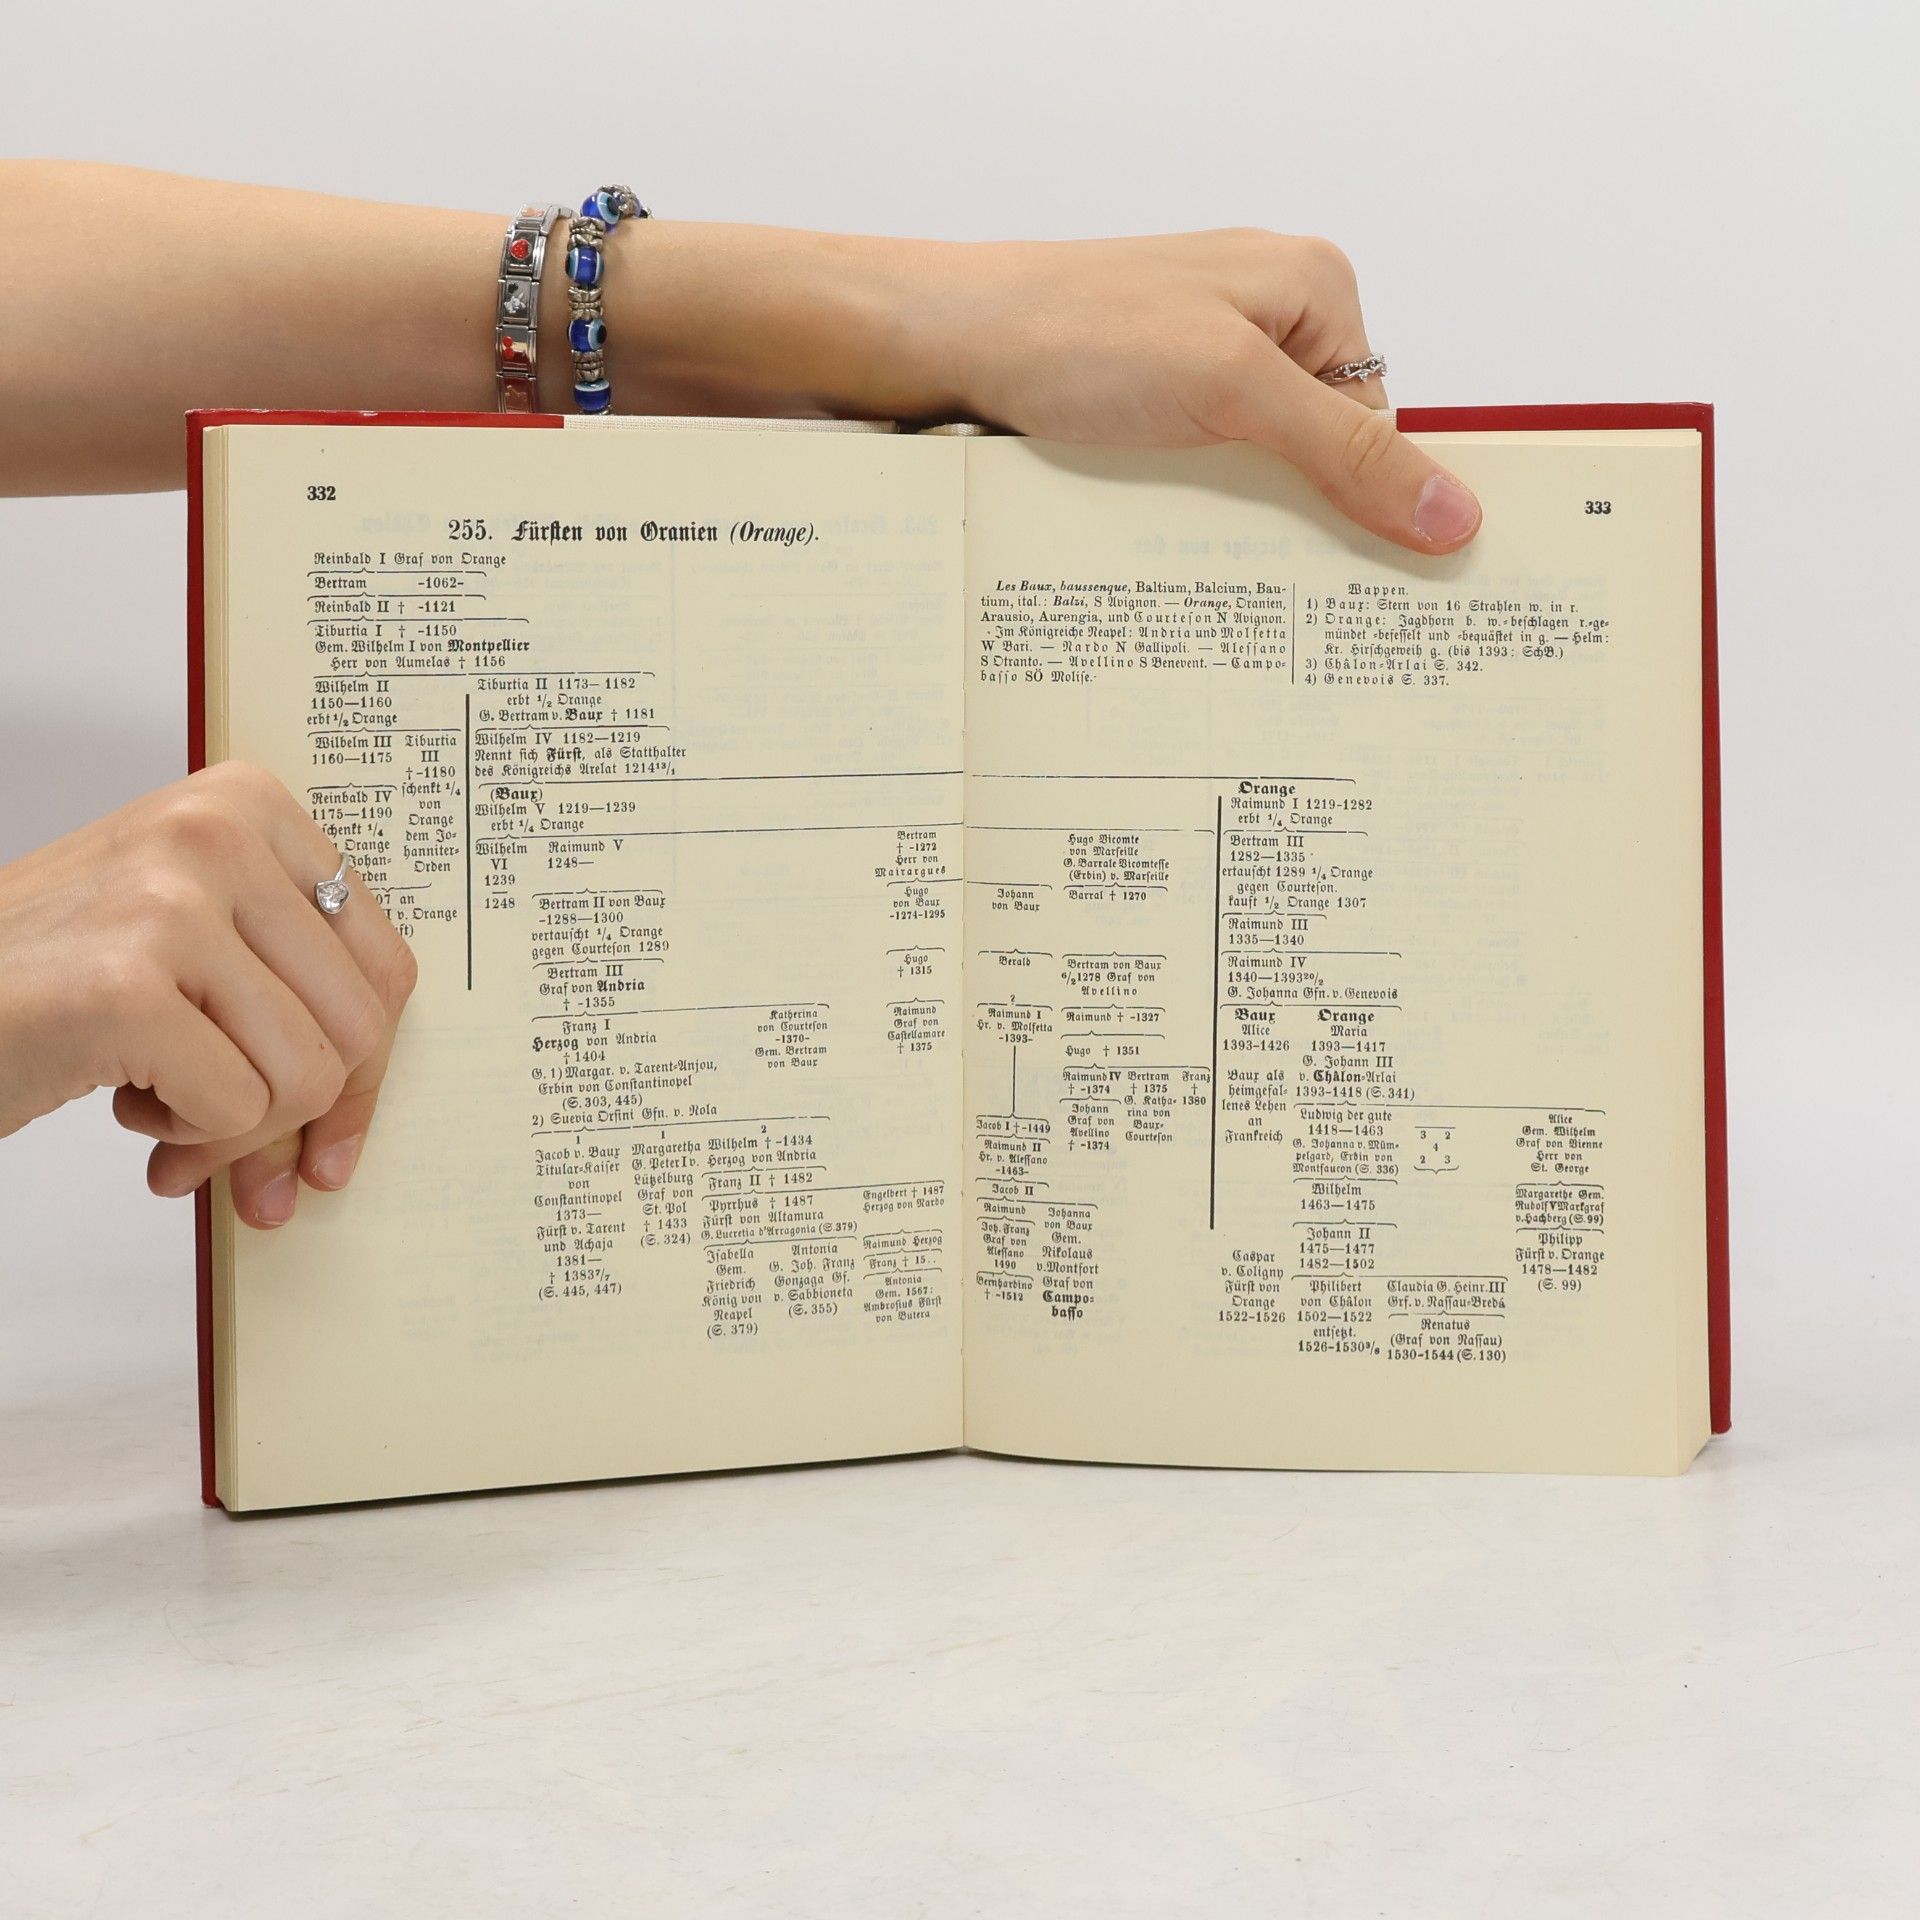 332
255. Fürsten von Oranien (Orange).
Reinbald I Graf von Orange
Bertram -1062-
Reinbald II † -1121
Tiburtia I † -1150
Gem. Wilhelm I von Montpellier
Herr von Aumelas † 1156
Wilhelm II
1150—1160
erbt ½ Orange
Wilhelm III
1160—1175
Tiburtia
III
† -1180
schenkt ¼
von
Orange
dem Jo-
hanniter-
Orden
Reinbald IV
1175—1190
schenkt ¼
Orange
Johan-
rden
07 an
I v. Orange
ft)
Tiburtia II 1173—1182
erbt ½ Orange
G. Bertram v. Baux † 1181
Wilhelm IV 1182—1219
Nennt sich Fürst, als Statthalter
des Königreichs Arelat 1214¹³/₁
(Baux)
Wilhelm V 1219—1239
erbt ¼ Orange
Wilhelm
VI
1239
—
1248
Raimund V
1248—
Bertram II von Baux
-1288—1300
vertauscht ¼ Orange
gegen Courteson 1289
Bertram III
Graf von Andria
† -1355
Franz I
Herzog von Andria
† 1404
G. 1) Margar. v. Tarent-Anjou,
Erbin von Constantinopel
(S. 303, 445)
2) Suevia Orsini Gfn. v. Nola
Katherina
von Courteson
-1370-
Gem. Bertram
von Baux
Bertram
† -1272
Herr von
Mairargues
Hugo
von Baux
-1274-1295
Hugo
† 1315
Raimund
Graf von
Castellamare
† 1375
1
Jacob v. Baux
Titular-Kaiser
von
Constantinopel
1373—
Fürst v. Tarent
und Achaja
1381—
† 1383⁷/₇
(S. 445, 447)
1
Margaretha
G. Peter I v.
Lützelburg
Graf von
St. Pol
† 1433
(S. 324)
2
Wilhelm † -1434
Herzog von Andria
Franz II † 1482
Pyrrhus † 1487
Fürst von Altamura
G. Lucretia d'Arragonia (S. 379)
Isabella
Gem.
Friedrich
König von
Neapel
(S. 379)
Antonia
G. Joh. Franz
Gonzaga Gf.
v. Sabbioneta
(S. 355)
Engelbert † 1487
Herzog von Nardo
Raimund Herzog
Franz † 15..
Antonia
Gem. 1567:
Ambrosius Fürst
von Butera
333
Les Baux, baussenque, Baltium, Balcium, Bau-
tium, ital.: Balzi, S Avignon. — Orange, Oranien,
Arausio, Aurengia, und Courteson N Avignon.
- Im Königreiche Neapel: Andria und Molfetta
W Bari. — Nardo N Gallipoli. — Alessano
S Otranto. — Avellino S Benevent. — Campo-
basso SÖ Molise.-
Wappen.
1) Baux: Stern von 16 Strahlen w. in r.
2) Orange: Jagdhorn b. w.-beschlagen r.-ge-
mündet -befesselt und -bequästet in g. — Helm:
Kr. Hirschgeweih g. (bis 1393: SchB.)
3) Châlon-Arlai S. 342.
4) Genevois S. 337.
Hugo Vicomte
von Marseille
G. Barrale Vicomtesse
(Erbin) v. Marseille
Johann
von Baux
Barral † 1270
Berald
Bertram von Baux
⁶/₂1278 Graf von
Avellino
?
Raimund I
Hr. v. Molfetta
-1393-
Raimund † -1327
Hugo † 1351
Raimund IV
† -1374
Bertram
† 1375
G. Katha-
rina von
Baux-
Courteson
Franz
†
1380
Johann
Graf von
Avellino
† -1374
Jacob I † -1449
Raimund II
Hr. v. Alessano
-1463-
Jacob II
Raimund
Joh. Franz
Graf von
Alessano
1490
Bernhardino
† -1512
Johanna
von Baux
Gem.
Nikolaus
v. Montfort
Graf von
Campo-
basso
Orange
Raimund I 1219-1282
erbt ¼ Orange
Bertram III
1282—1335
ertauscht 1289 ¼ Orange
gegen Courteson.
kauft ½ Orange 1307
Raimund III
1335—1340
Raimund IV
1340—1393²⁰/₂
G. Johanna Gfn. v. Genevois
Baux
Alice
1393-1426
Baux als
heimgefal-
lenes Lehen
an
Frankreich
Orange
Maria
1393—1417
G. Johann III
v. Châlon-Arlai
1393-1418 (S. 341)
Ludwig der gute
1418—1463
G. Johanna v. Müm-
pelgard, Erbin von
Montfaucon (S. 336)
3 2
4
2 3
Alice
Gem. Wilhelm
Graf von Vienne
Herr von
St. George
Wilhelm
1463—1475
Margarethe Gem.
Rudolf V Markgraf
v. Hachberg (S. 99)
Johann II
1475—1477
1482—1502
Philipp
Fürst v. Orange
1478—1482
(S. 99)
Caspar
v. Coligny
Fürst von
Orange
1522-1526
Philibert
von Châlon
1502—1522
entsetzt.
1526-1530³/₈
Claudia G. Heinr. III
Grf. v. Nassau-Bredá
Renatus
(Graf von Nassau)
1530-1544 (S. 130)